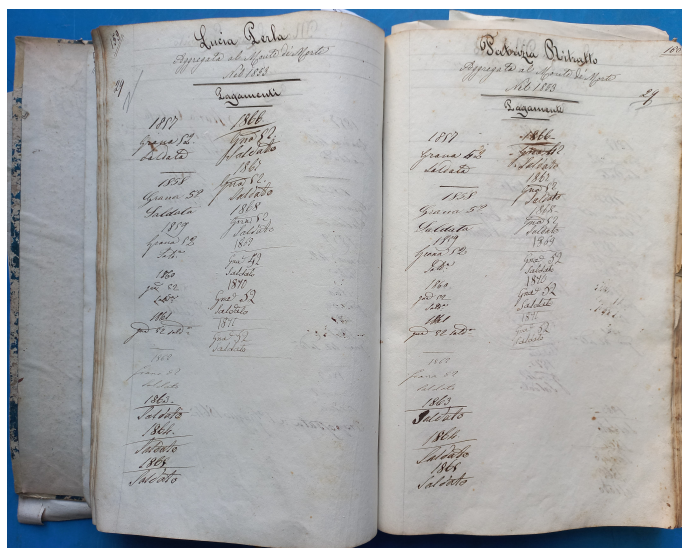 Lucia Perla
Aggregata al Monte de' Morti
Nel 1853
Pagamenti
29
1857
Grana 52
Saldata
1858
Grana 52
Saldata
1859
Grana 52
1860
52
1861
52
1862
Grana 52
Saldato
1863
Saldato
1864
Saldato
1865
Saldato
1866
Gna 52
Saldato
1867
Gna 52
Saldato
1868
Gna 52
Saldato
1869
Gna 52
Saldato
1870
Gna 52
Saldato
1871
Gna 52
Saldato
Aggregata al Monte de' Morti
Nel 1853
Pagamenti
29
1857
Grana 52
Saldata
1858
Grana 52
Saldata
1859
Grana 52
1860
52
1861
52
1862
Grana 52
Saldato
1863
Saldato
1864
Saldato
1865
Saldato
1866
Gna 52
Saldato
1867
Gna 52
Saldato
1868
Gna 52
Saldato
1869
Gna 52
Saldato
1870
Gna 52
Saldato
1871
Gna 52
Saldato